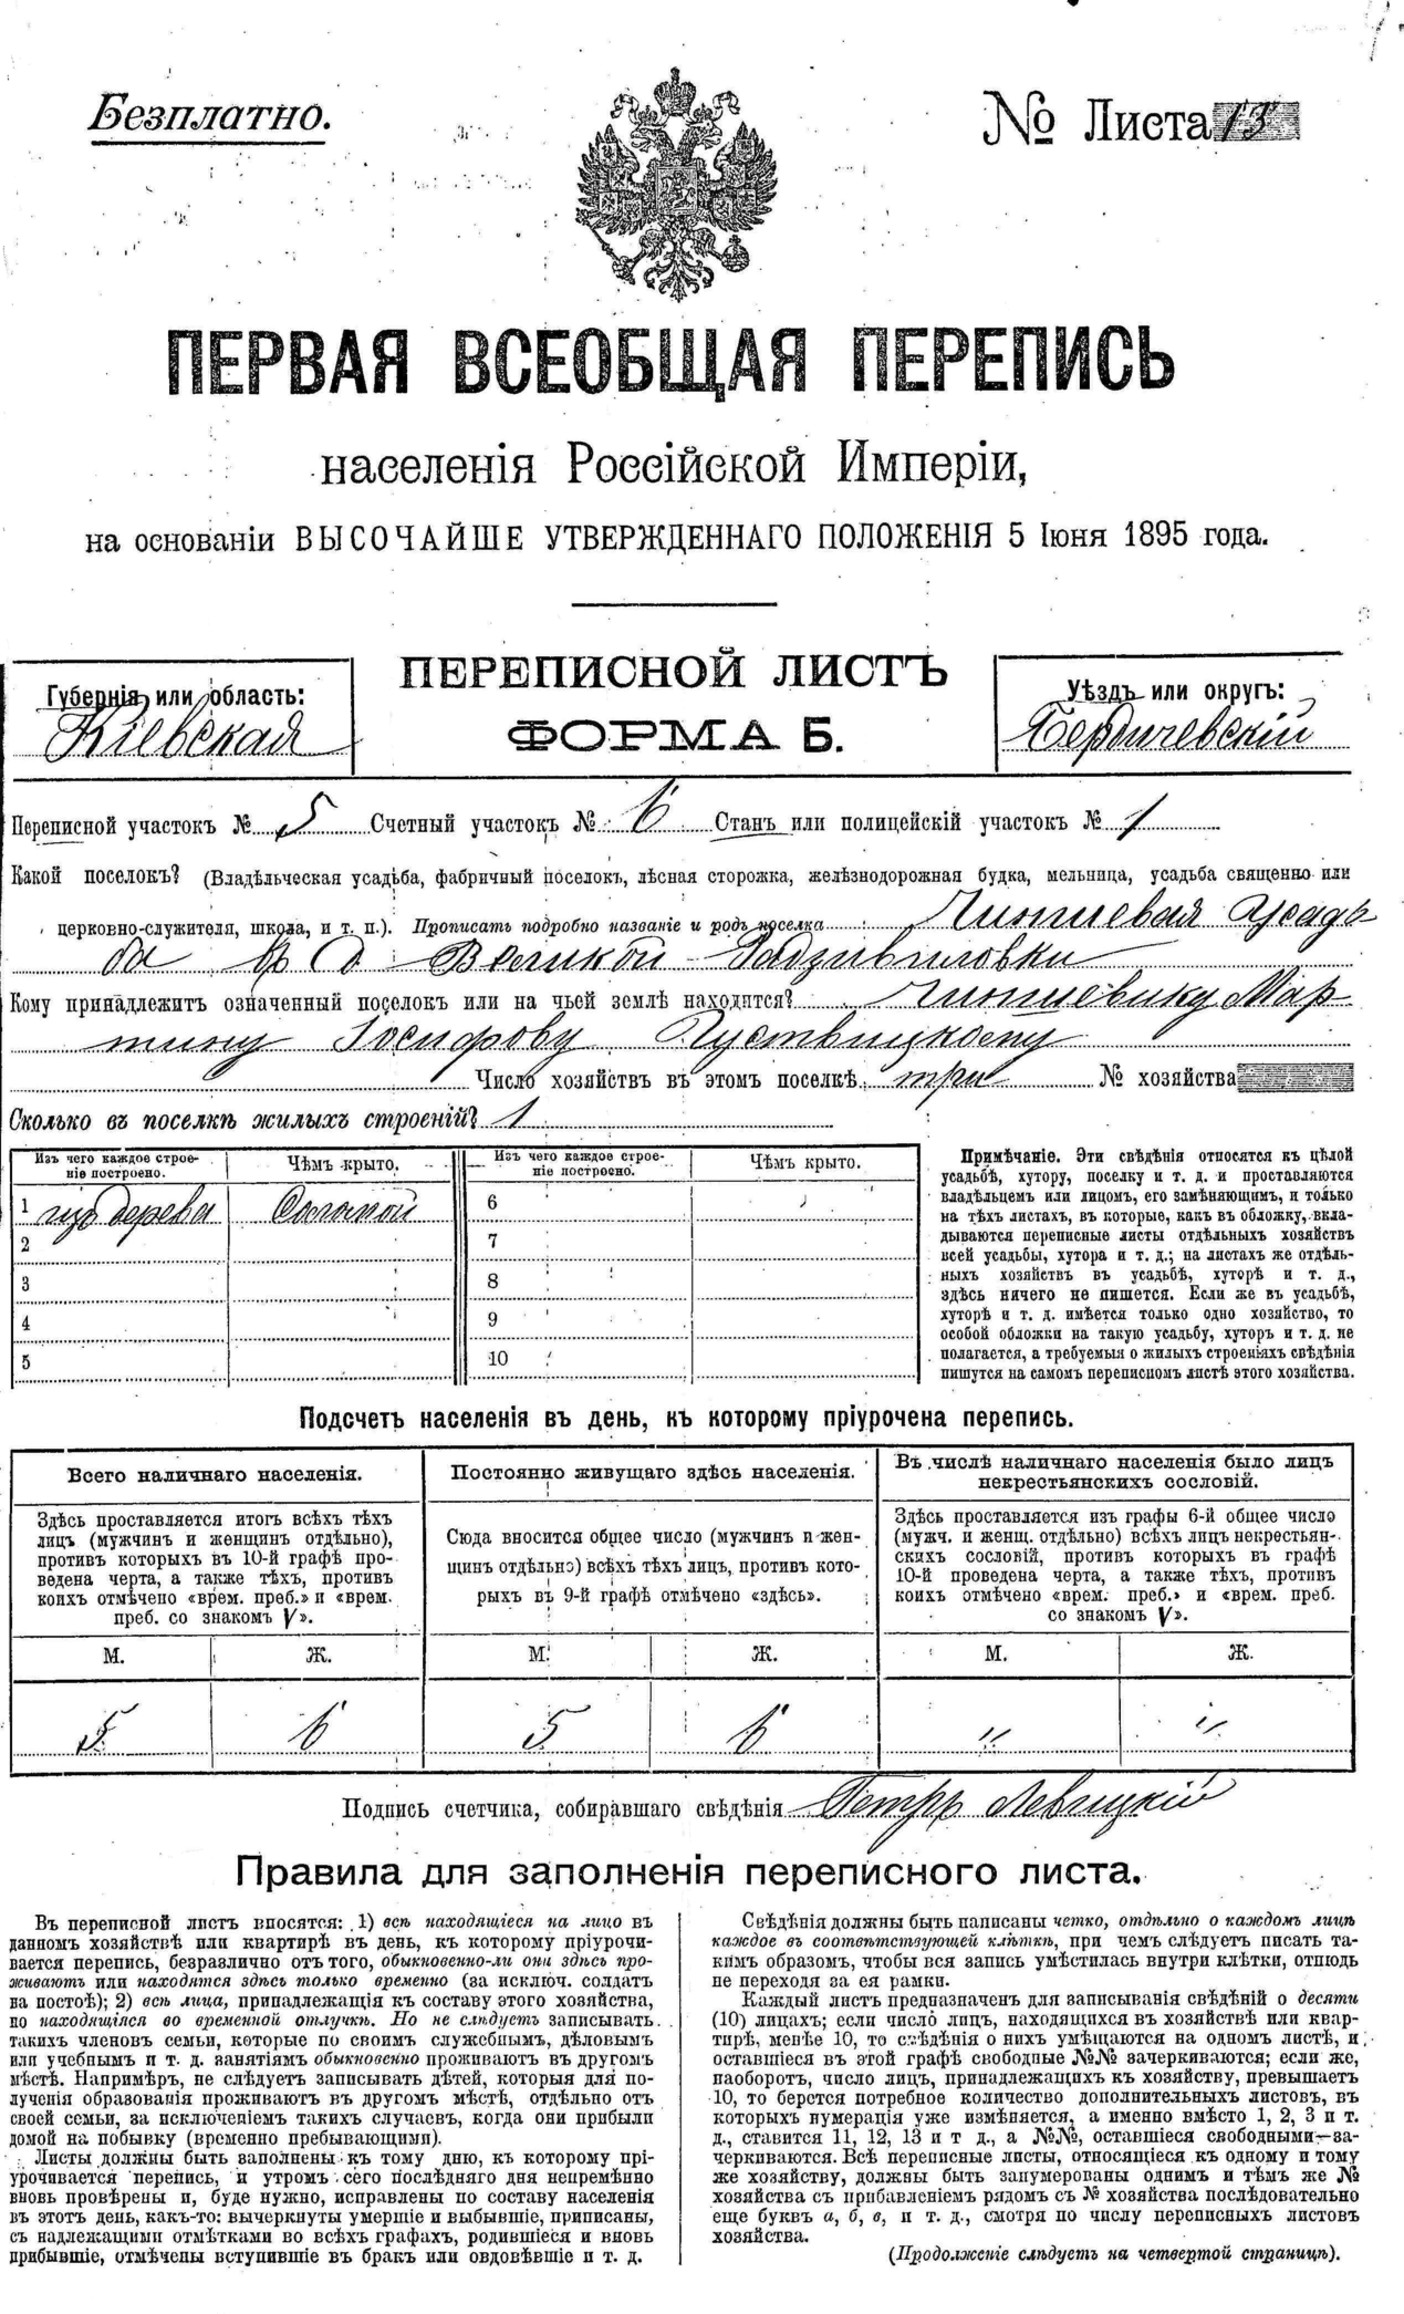 Безплатно.
№ Листа 13
ПЕРВАЯ ВСЕОБЩАЯ ПЕРЕПИСЬ
населенія Россійской Имперіи,
на основаніи ВЫСОЧАЙШЕ УТВЕРЖДЕННАГО ПОЛОЖЕНІЯ 5 Іюня 1895 года.
ПЕРЕПИСНОЙ ЛИСТЪ
ФОРМА Б.
Губернія или область:
Кіевская
Уѣздъ или округъ:
Бердичевскій
Переписной участокъ № 5 Счетный участокъ № 6 Станъ или полицейскій участокъ № 1
Какой поселокъ? (Владѣльческая усадьба, фабричный поселокъ, лѣсная сторожка, желѣзнодорожная будка, мельница, усадьба священно или
церковно-служителя, школа, и т. п.). Прописать подробно названіе и родъ поселка Чиншевая усадь
ба въ д Великой Радзивиловки
Кому принадлежитъ означенный поселокъ или на чьей землѣ находится? Чиншевику Мар
тину Іосифову Пуствицкому
Число хозяйствъ въ этомъ поселкѣ. три № хозяйства
Сколько въ поселкѣ жилыхъ строеній? 1
Изъ чего каждое строе-
ніе построено.
Чѣмъ крыто.
Изъ чего каждое строе-
ніе построено.
Чѣмъ крыто.
1 изъ дерева Соломой 6
2 7
3 8
4 9
5 10
Примѣчаніе. Эти свѣдѣнія относятся къ цѣлой
усадьбѣ, хутору, поселку и т. д. и проставляются
владѣльцемъ или лицомъ, его замѣняющимъ, и только
на тѣхъ листахъ, въ которые, какъ въ обложку, вкла-
дываются переписные листы отдѣльныхъ хозяйствъ
всей усадьбы, хутора и т. д.; на листахъ же отдѣль-
ныхъ хозяйствъ въ усадьбѣ, хуторѣ и т. д.,
здѣсь ничего не пишется. Если же въ усадьбѣ,
хуторѣ и т. д. имѣется только одно хозяйство, то
особой обложки на такую усадьбу, хуторъ и т. д. не
полагается, а требуемыя о жилыхъ строеніяхъ свѣдѣнія
пишутся на самомъ переписномъ листѣ этого хозяйства.
Подсчетъ населенія въ день, къ которому пріурочена перепись.
Всего наличнаго населенія.
Здѣсь проставляется итогъ всѣхъ тѣхъ
лицъ (мужчинъ и женщинъ отдѣльно),
противъ которыхъ въ 10-й графѣ про-
ведена черта, а также тѣхъ, противъ
коихъ отмѣчено «врем. преб.» и «врем.
преб. со знакомъ V».
М. Ж.
5 6
Постоянно живущаго здѣсь населенія.
Сюда вносится общее число (мужчинъ и жен-
щинъ отдѣльно) всѣхъ тѣхъ лицъ, противъ кото-
рыхъ въ 9-й графѣ отмѣчено «здѣсь».
М. Ж.
5 6
Въ числѣ наличнаго населенія было лицъ
некрестьянскихъ сословій.
Здѣсь проставляется изъ графы 6-й общее число
(мужч. и женщ. отдѣльно) всѣхъ лицъ некрестьян-
скихъ сословій, противъ которыхъ въ графѣ
10-й проведена черта, а также тѣхъ, противъ
коихъ отмѣчено «врем. преб.» и «врем. преб.
со знакомъ V».
М. Ж.
" "
Подпись счетчика, собиравшаго свѣдѣнія Петръ Левицкій
Правила для заполненія переписного листа.
Въ переписной листъ вносятся: 1) всѣ находящіеся на лицо въ
данномъ хозяйствѣ или квартирѣ въ день, къ которому пріурочи-
вается перепись, безразлично отъ того, обыкновенно-ли они здѣсь про-
живаютъ или находятся здѣсь только временно (за исключ. солдатъ
на постоѣ); 2) всѣ лица, принадлежащія къ составу этого хозяйства,
но находящіяся во временной отлучкѣ. Но не слѣдуетъ записывать
такихъ членовъ семьи, которые по своимъ служебнымъ, дѣловымъ
или учебнымъ и т. д. занятіямъ обыкновенно проживаютъ въ другомъ
мѣстѣ. Напримѣръ, не слѣдуетъ записывать дѣтей, которыя для по-
лученія образованія проживаютъ въ другомъ мѣстѣ, отдѣльно отъ
своей семьи, за исключеніемъ такихъ случаевъ, когда они прибыли
домой на побывку (временно пребывающими).
Листы должны быть заполнены къ тому дню, къ которому прі-
урочивается перепись, и утромъ сего послѣдняго дня непремѣнно
вновь провѣрены и, буде нужно, исправлены по составу населенія
въ этотъ день, какъ-то: вычеркнуты умершіе и выбывшіе, приписаны,
съ надлежащими отмѣтками во всѣхъ графахъ, родившіеся и вновь
прибывшіе, отмѣчены вступившіе въ бракъ или овдовѣвшіе и т. д.
Свѣдѣнія должны быть написаны четко, отдѣльно о каждомъ лицѣ
каждое въ соотвѣтствующей клѣткѣ, при чемъ слѣдуетъ писать та-
кимъ образомъ, чтобы вся запись умѣстилась внутри клѣтки, отнюдь
не переходя за ея рамки.
Каждый листъ предназначенъ для записыванія свѣдѣній о десяти
(10) лицахъ; если число лицъ, находящихся въ хозяйствѣ или квар-
тирѣ, менѣе 10, то свѣдѣнія о нихъ умѣщаются на одномъ листѣ, и
оставшіеся въ этой графѣ свободные №№ зачеркиваются; если же,
наоборотъ, число лицъ, принадлежащихъ къ хозяйству, превышаетъ
10, то берется потребное количество дополнительныхъ листовъ, въ
которыхъ нумерація уже измѣняется, а именно вмѣсто 1, 2, 3 и т.
д., ставится 11, 12, 13 и т д., а №№, оставшіеся свободными—за-
черкиваются. Всѣ переписные листы, относящіеся къ одному и тому
же хозяйству, должны быть занумерованы однимъ и тѣмъ же №
хозяйства съ прибавленіемъ рядомъ съ № хозяйства послѣдовательно
еще буквъ а, б, в, и т. д., смотря по числу переписныхъ листовъ
хозяйства.
(Продолженіе слѣдуетъ на четвертой страницѣ).